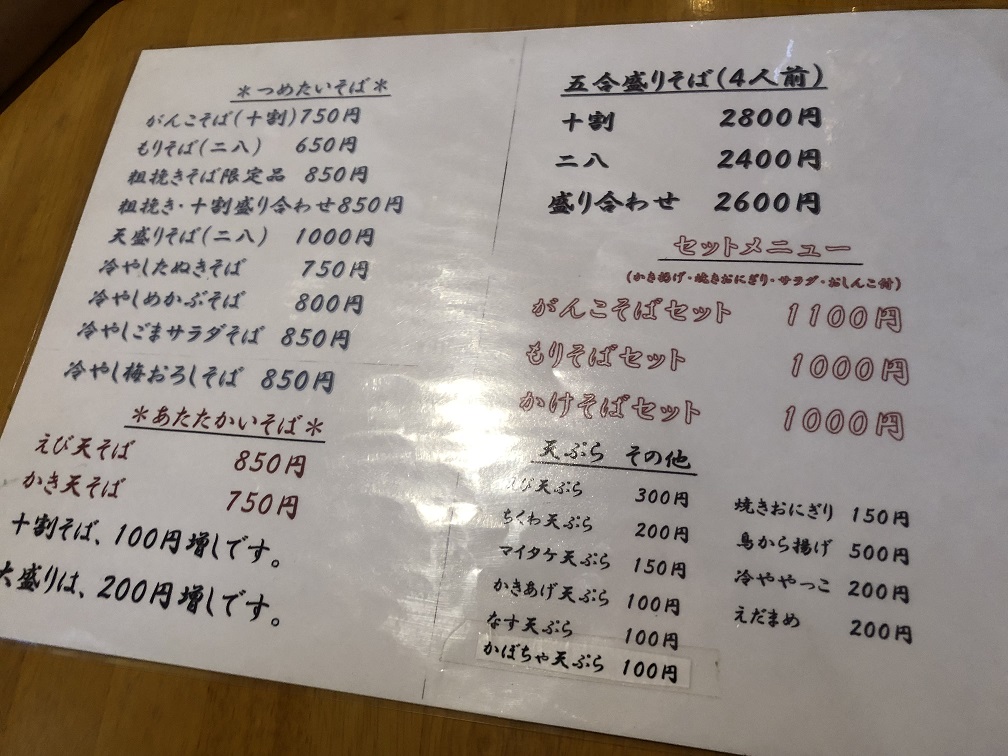 ＊つめたいそば＊
がんこそば(十割)750円
もりそば(二八) 650円
粗挽きそば限定品 850円
粗挽き・十割盛り合わせ850円
天盛りそば(二八) 1000円
冷やしたぬきそば 750円
冷やしめかぶそば 800円
冷やしごまサラダそば 850円
冷やし梅おろしそば 850円
＊あたたかいそば＊
えび天そば 850円
かき天そば 750円
十割そば、100円増しです。
大盛りは、200円増しです。
五合盛りそば(4人前)
十割 2800円
二八 2400円
盛り合わせ 2600円
セットメニュー
(かき揚げ・焼きおにぎり・サラダ・おしんこ付)
がんこそばセット 1100円
もりそばセット 1000円
かけそばセット 1000円
天ぷら その他
えび天ぷら 300円
ちくわ天ぷら 200円
マイタケ天ぷら 150円
かきあげ天ぷら 100円
なす天ぷら 100円
かぼちゃ天ぷら 100円
焼きおにぎり 150円
鳥から揚げ 500円
冷ややっこ 200円
えだまめ 200円